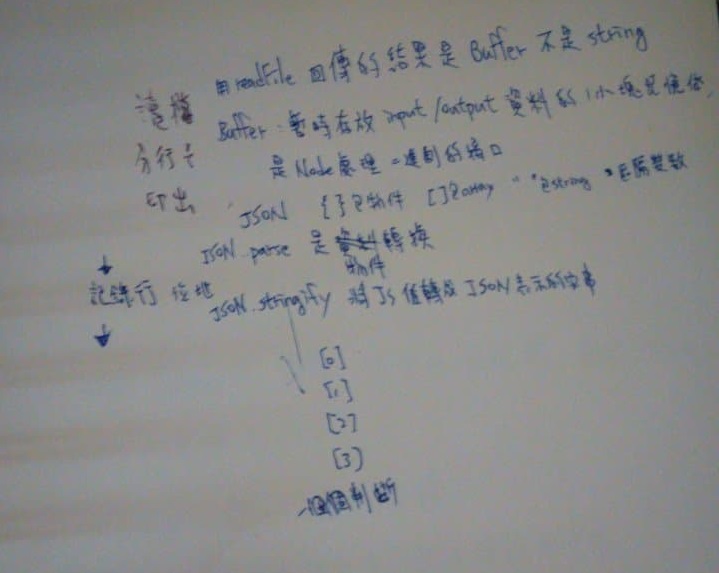 用 readFile 回傳的結果是 Buffer 不是 string
讀檔
Buffer：暫時存放 input/output 資料的1小塊記憶體,
分行子
是 Node 處理二進制的接口
印出
JSON {}包物件 []包array " "包string
JSON.parse 是資料轉換
物件
↓
記錄行 位址
JSON.stringify 將JS值轉成JSON表示的字串
↓
[0]
[1]
[2]
[3]
一個個判斷